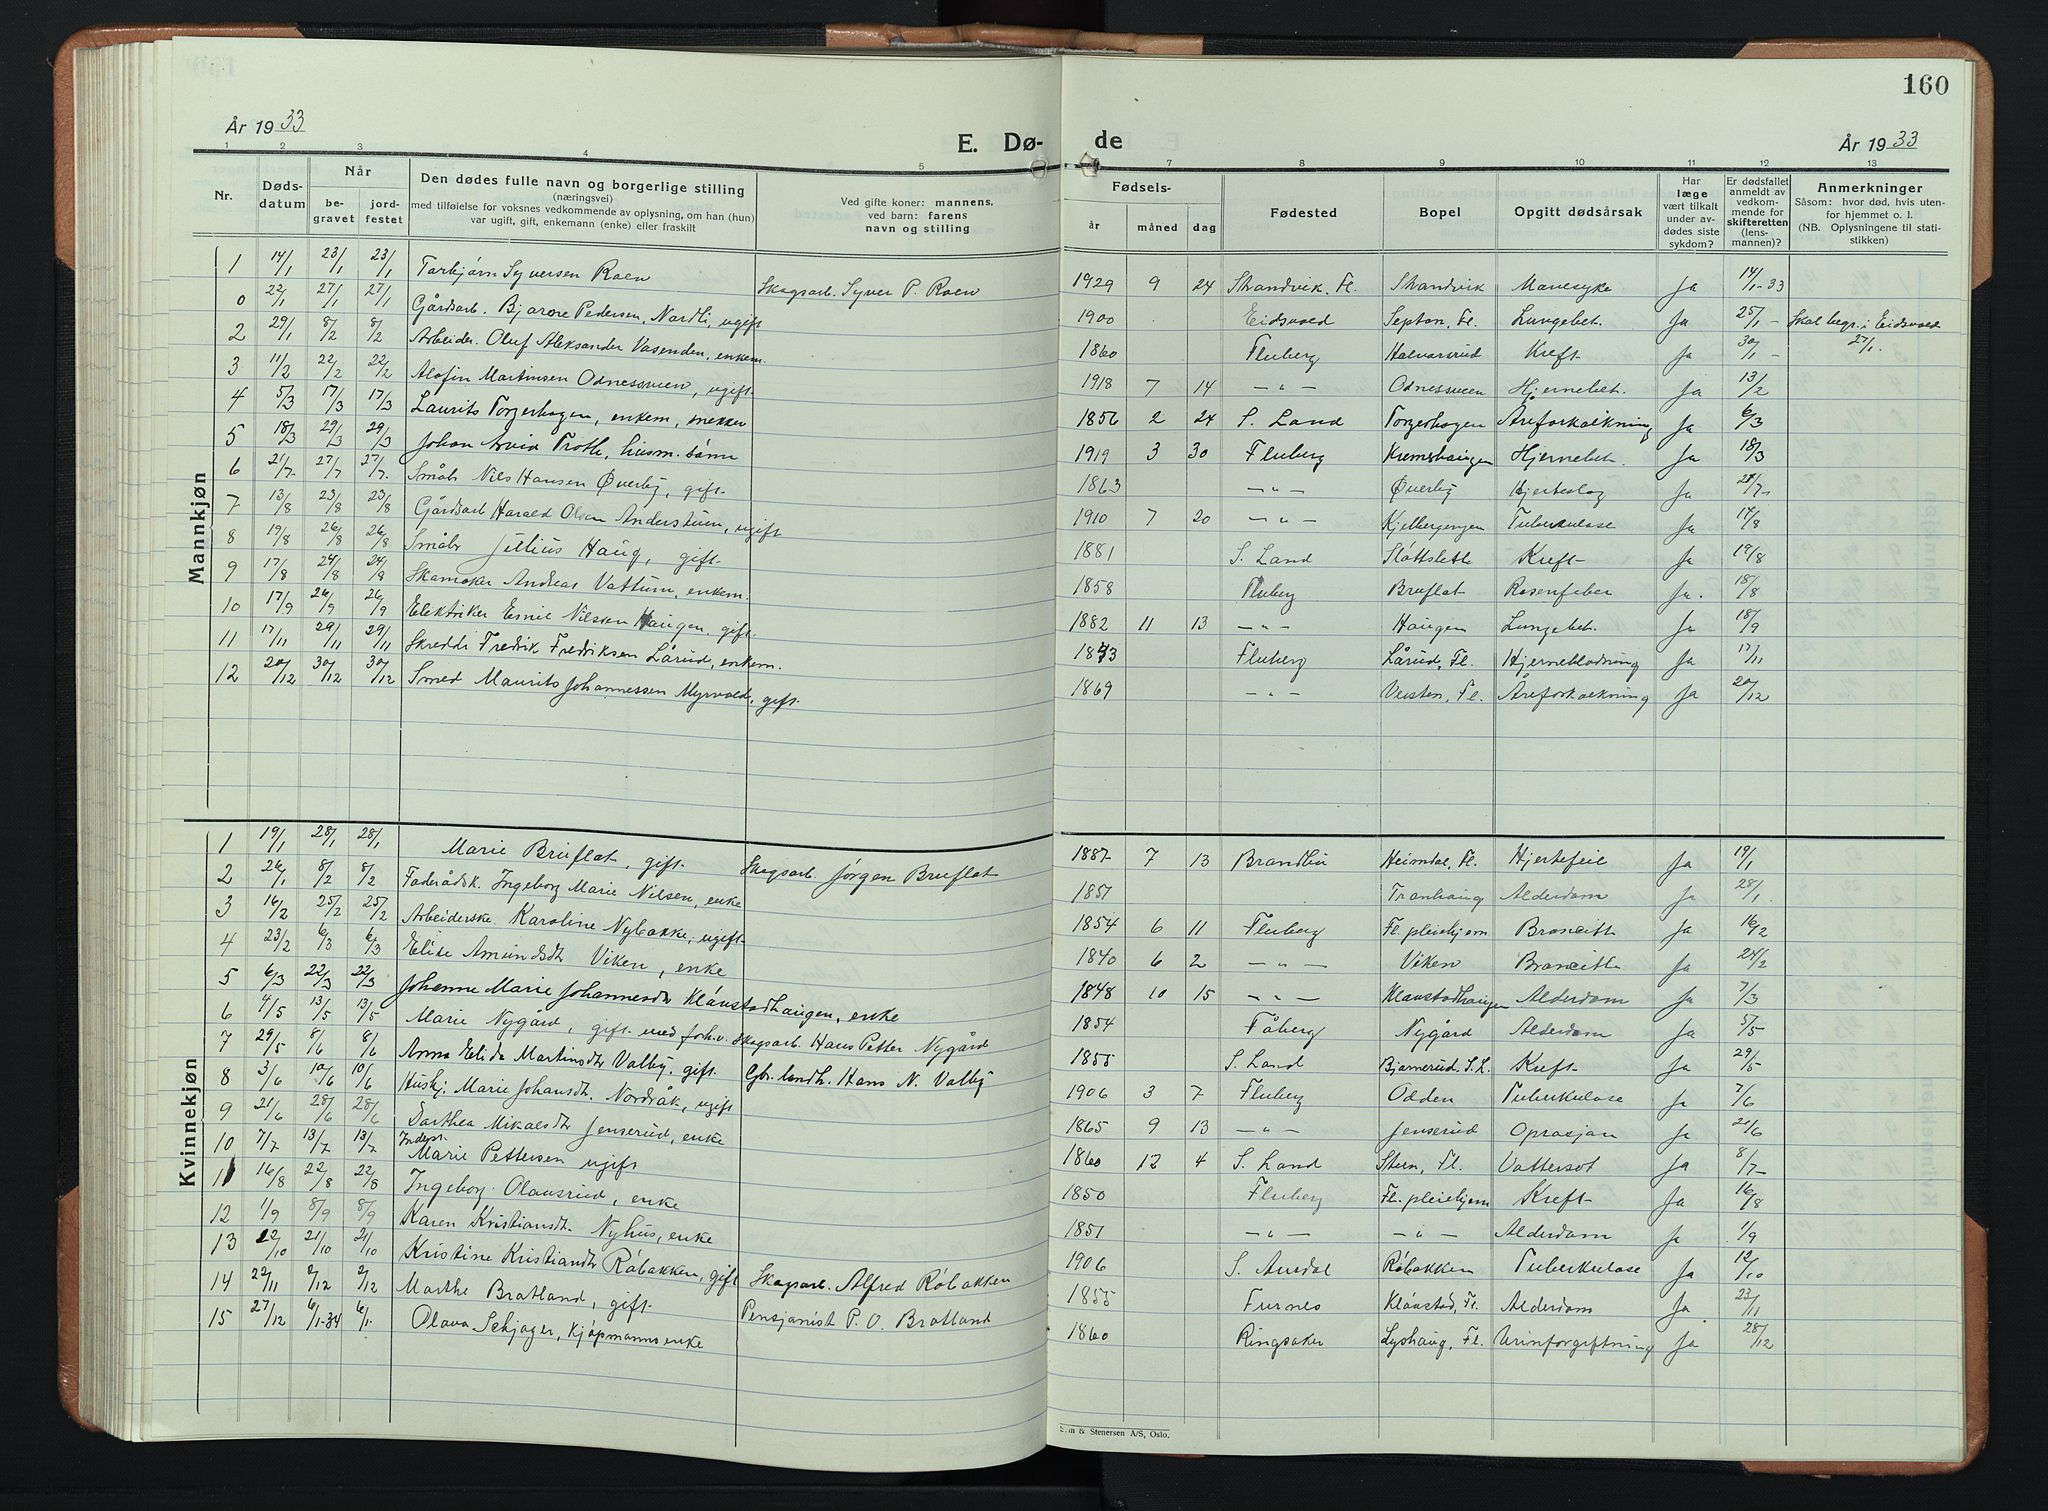 160
År 1933
E. Dø- de
År 1933
1 2 3 4 5 7 8 9 10 11 12 13
Nr.
Dødsdatum
Når
begravet
jordfestet
Den dødes fulle navn og borgerlige stilling
(næringsvei)
med tilføielse for voksnes vedkommende av oplysning, om han (hun)
var ugift, gift, enkemann (enke) eller fraskilt
Ved gifte koner: mannens.
ved barn: farens
navn og stilling
Fødsels-
år måned dag
Fødested
Bopel
Opgitt dødsårsak
Har læge vært tilkalt under avdødes siste sykdom?
Er dødsfallet anmeldt av vedkommende for skifteretten (lensmannen)?
Anmerkninger
Såsom: hvor død, hvis utenfor hjemmet o. l.
(NB. Oplysningene til statistikken)
Mannkjøn
1 14/1 23/1 23/1 Torbjørn Syversen Roen Skogsarb. Syver P. Roen 1929 9 24 Strandvik, Fl. Strandvik Mavesyke Ja 14/1-33
0 22/1 27/1 27/1 Gårdsarb. Bjarne Pedersen, Nordli, ugift 1900 Eidsvold Septon, Fl. Lungebet. Ja 25/1 - Skal begr. i Eidsvold 27/1.
2 29/1 8/2 8/2 Arbeider. Oluf Aleksander Vasenden, enkem. 1860 Fluberg Halvorsrud Kreft Ja 30/1 -
3 11/2 22/2 22/2 Alofin Martinsen Odnessveen, ugift. 1918 7 14 -"- Odnessveen Hjernebet. Ja 13/2
4 5/3 17/3 17/3 Laurits Torgerhagen, enkem, snekker 1856 2 24 S. Land Torgerhagen Åreforkalkning Ja 6/3
5 18/3 29/3 29/3 Johan Arvid Troth, husm. sønn 1919 3 30 Fluberg Kremshaugen Hjernebet. Ja 18/3
6 21/7 27/7 27/7 Småbr Nils Hansen Øverby, gift. 1863 -"- Øverby Hjerteslag Ja 21/7
7 13/8 23/8 23/8 Gårdsarb Harald Olsen Anderstuen, ugift 1910 7 20 -"- Kjelbergengen Tuberkulose Ja 17/8
8 19/8 26/8 26/8 Småbr Julius Haug, gift. 1881 S. Land Slåttsletta Kreft Ja 19/8
9 17/8 24/8 24/8 Skomaker Andreas Vattum, enkem. 1858 Fluberg Bruflat Rosenfeber Ja. 18/8
10 17/9 26/9 26/9 Elektriker Emil Nilsen Haugen, gift. 1882 11 13 -"- Haugen Lungebet. Ja 18/9
11 17/11 29/11 29/11 Skredder Fredrik Fredriksen Lårud, enkem. 1843 Fluberg Lårud, Fl. Hjerneblødning Ja 17/11
12 20/12 30/12 30/12 Smed Maurits Johannessen Myrvold, gift. 1869 -"- Veisten, Fl. Åreforkalkning Ja 20/12
Kvinnekjøn
1 19/1 28/1 28/1 Marie Bruflat, gift. Skogsarb. Jørgen Bruflat 1887 7 13 Brandbu Heimdal, Fl. Hjertefeil Ja 19/1
2 26/1 8/2 8/2 Føderådsk. Ingeborg Marie Nilsen, enke 1851 Tranhaug Alderdom Ja 28/1
3 16/2 25/2 25/2 Arbeiderske Karoline Nybakke, ugift. 1854 6 11 Fluberg Fl. pleiehjem Broncitt Ja 16/2
4 23/2 6/3 6/3 Elise Amundsdt Viken, enke 1840 6 2 -"- Viken Broncitt Ja 24/2
5 6/3 22/3 22/3 Johanne Marie Johannesdt Klåvstadhaugen, enke 1848 10 15 -"- Klåvstadhaugen Alderdom Ja 7/3
6 4/5 13/5 13/5 Marie Nygård, gift med forhv. Skogsarb. Hans Petter Nygård 1854 Fåberg Nygård Alderdom Ja 5/5
7 29/5 8/6 8/6 Anna Elida Martinsdt Valby, gift. Gbr. landh. Hans N. Valby 1855 S. Land Bjørnerud, S.L. Kreft Ja 29/5
8 3/6 10/6 10/6 Hushj. Marie Johansdt. Nordråk, ugift 1906 3 7 Fluberg Odden Tuberkulose Ja 7/6
9 21/6 28/6 28/6 Dorthea Mikaelsdt Jenserud, enke 1865 9 13 -"- Jenserud Oprasjon Ja 21/6
10 7/7 13/7 13/7 Indepst. Marie Pettersen ugift 1860 12 4 S. Land Steen, Fl. Vattersot Ja 8/7
11 16/8 22/8 22/8 Ingeborg Olausrud, enke 1850 Fluberg Fl. pleiehjem Kreft Ja 16/8
12 1/9 8/9 8/9 Karen Kristiansdt. Nyhus, enke 1851 -"- -"- Alderdom Ja 1/9
13 12/10 21/10 21/10 Kristine Kristiandtr Røbakken, gift Skogsarb. Alfred Røbakken 1906 S. Aurdal Røbakken Tuberkulose Ja 12/10
14 22/11 2/12 2/12 Marthe Bratland, gift. Pensjonist P. O. Bratland 1855 Furnes Klåvstad, Fl. Alderdom Ja 23/11
15 27/12 6/1-34 6/1. Olava Schjager, kjøpmannsenke 1860 Ringsaker Lyshaug, Fl. Urinforgiftning Ja 28/12
& Stenersen A/S, Oslo.